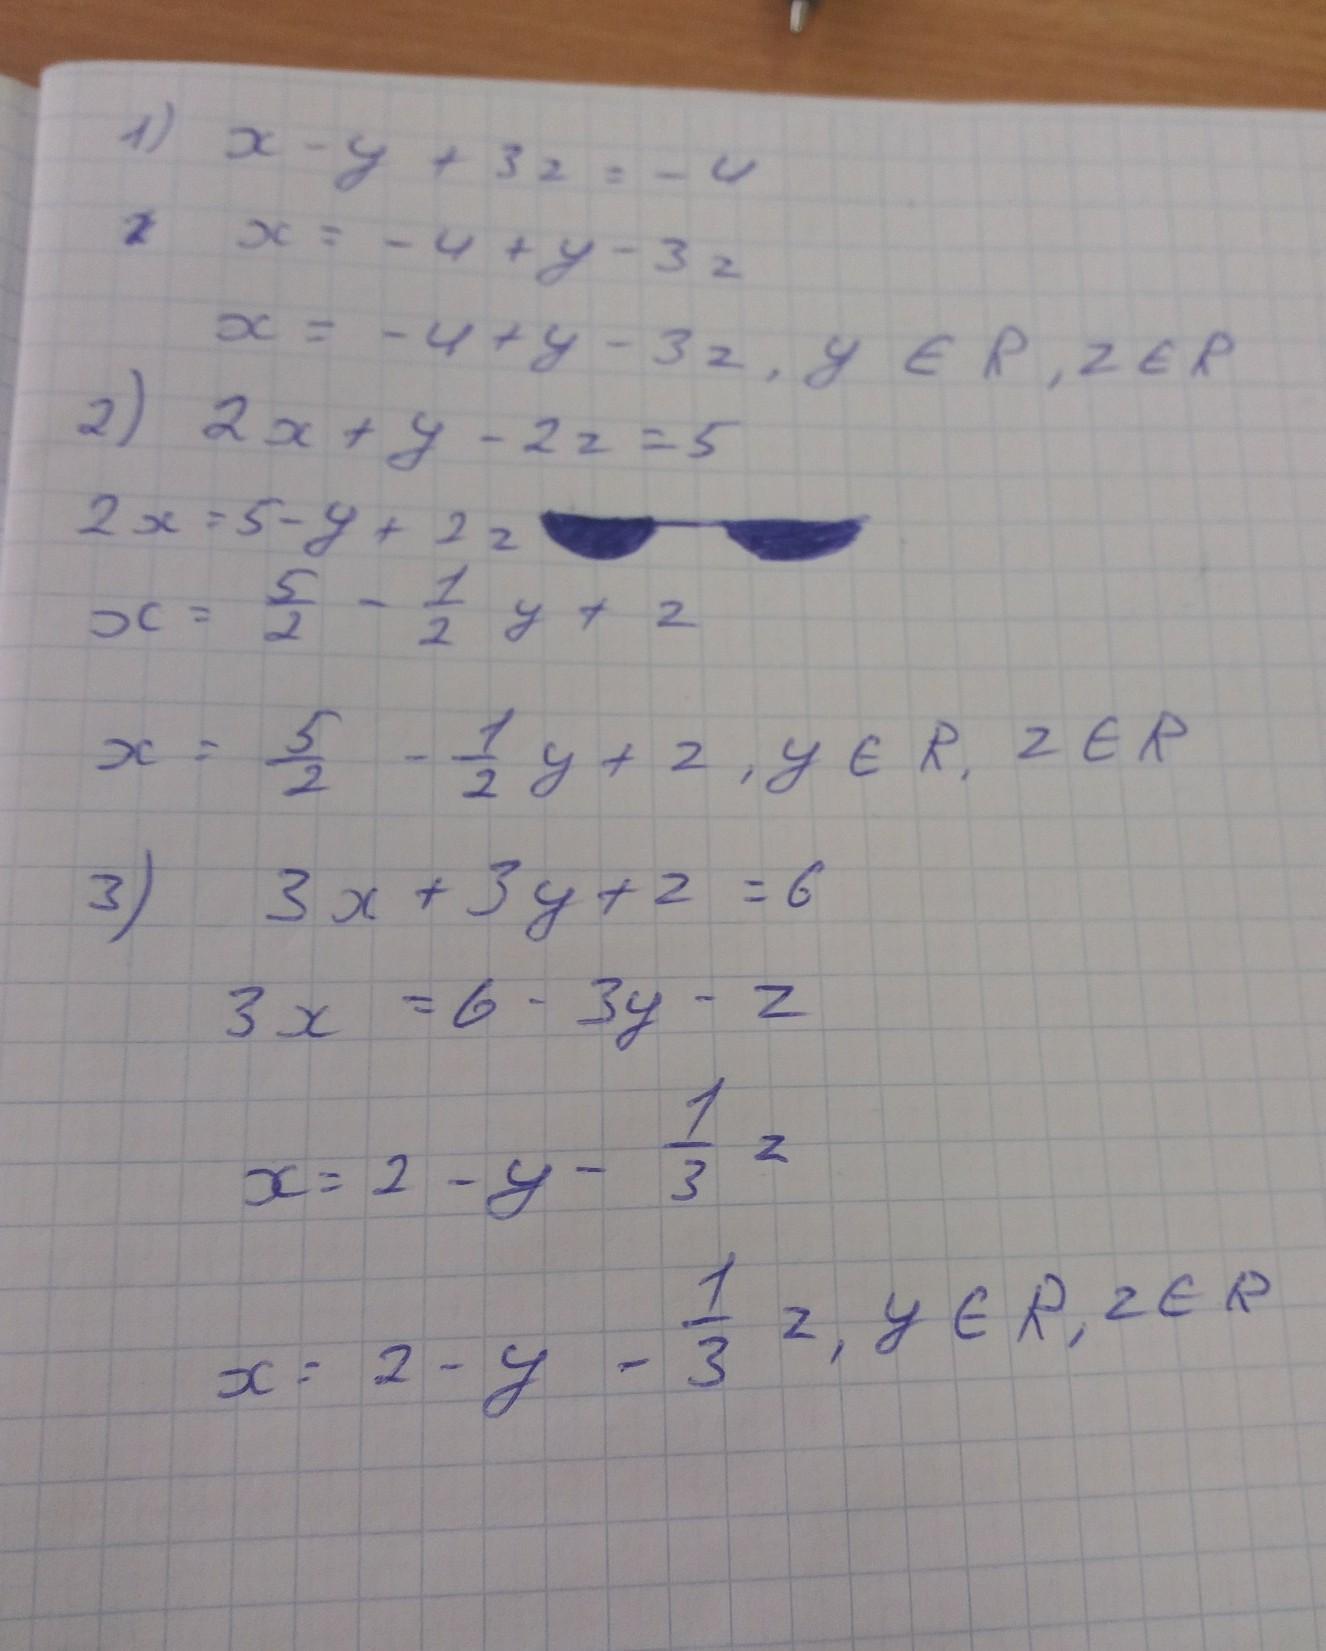 1) x - y + 3z = -4
x = -4 + y - 3z
x = -4 + y - 3z, y ∈ R, z ∈ R
2) 2x + y - 2z = 5
2x = 5 - y + 2z
x = 5/2 - 1/2 y + z
x = 5/2 - 1/2 y + z, y ∈ R, z ∈ R
3) 3x + 3y + z = 6
3x = 6 - 3y - z
x = 2 - y - 1/3 z
x = 2 - y - 1/3 z, y ∈ R, z ∈ R